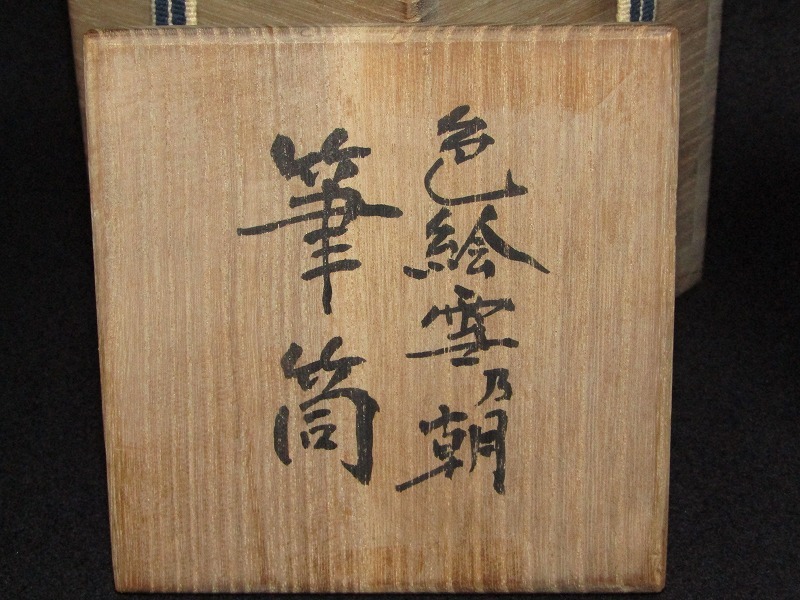 色絵雪乃朝
筆筒